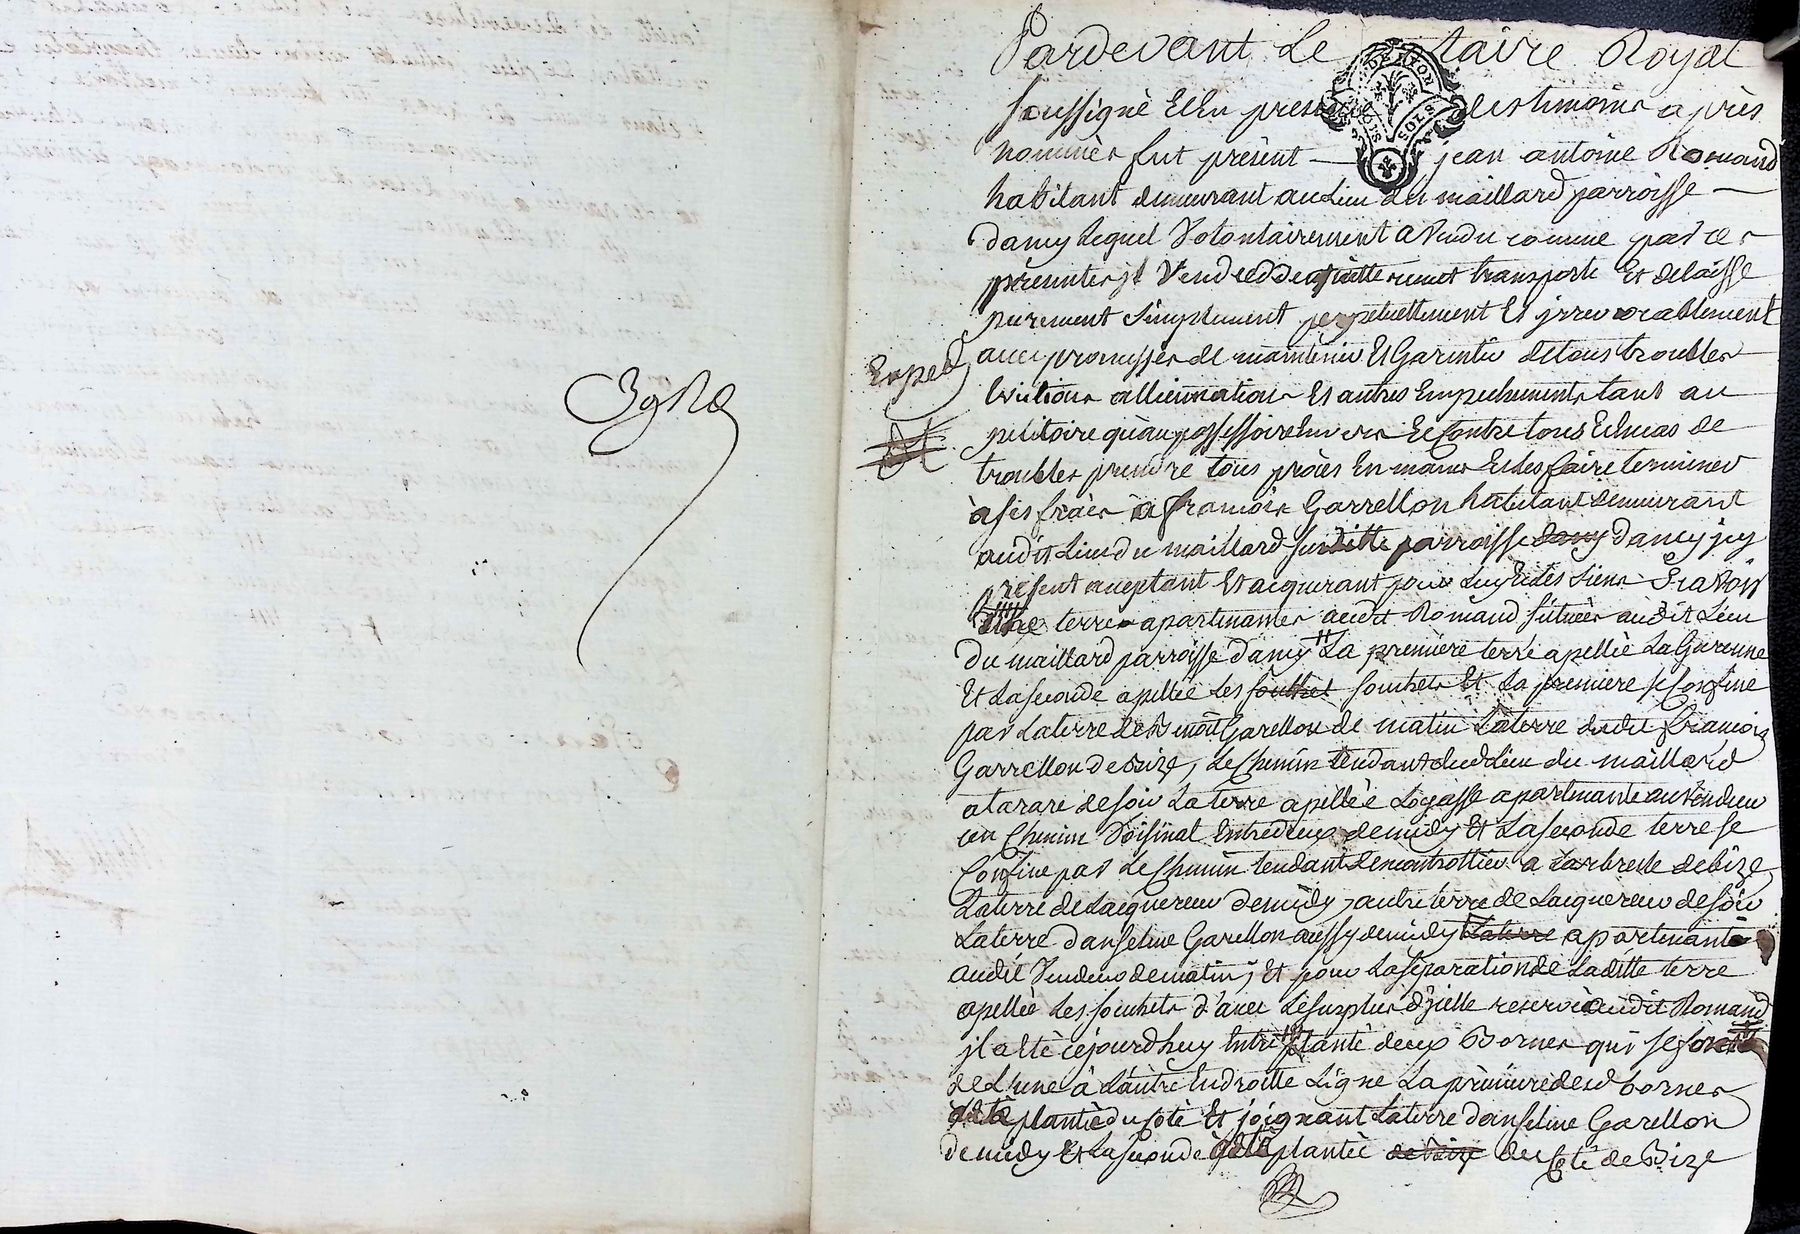 Pardevant Le Notaire Royal
soussigné Et En presence des temoins apres
nommés fut présent — jean antoine Romand
habitant demeurant au Lieu du maillard parroisse —
dancy lequel Volontairement a Vendu comme par ces
presentes jl Vend cedde quitte remet transporte Et delaisse
purement simplement perpetuellement Et jrrevocablement
avec promesses de maintenir Et Garentir de tous troubles
Evictions allienations Et autres Empechements tant au
petitoire qu'au possessoire Envers Et Contre tous Et En cas de
troubles prendre tous procés En mains Et les faire terminer
à ses frais à francois Garrellon habitant demeurant
audit Lieu du maillard susditte parroisse dancy dancy jcy
présent aceptant Et acquerant pour Luy Et les siens Scavoir
terres apartenantes audit Romand situées audit Lieu
du maillard parroisse dancy La premiere terre apellée La Garenne
Et La seconde apellée Les souchet souchets Et La premiere se Confine
par La terre de Benoit Garellon de matin La terre dudit francois
Garrellon de bize, Le Chemin tendant dudit Lieu du maillard
a tarare de soir La terre apellée Logasse apartenante au Vendeur
un Chemin Voisinal Entredeux de midy Et La seconde terre se
Confine par Le Chemin tendant de montrottier a Larbresle de bize,
La terre de Lacquereur de midy, autre terre de Lacquereur de soir
La terre danselme Garellon aussy de midy La terre apartenante
audit Vendeur de matin, Et pour La séparation de Laditte terre
apellée Les souchets d'avec Le surplus d'jcelle reservé audit Romand
jl a Eté cejourdhuy Entre planté deux Bornes qui se
de L'une à L'autre En droitte Ligne La première desd bornes
plantée du coté Et joignant La terre danselme Garellon
de midy Et La seconde plantée de bize du Coté de Bize
Exped
3 9bre
DE LYON
SOLS